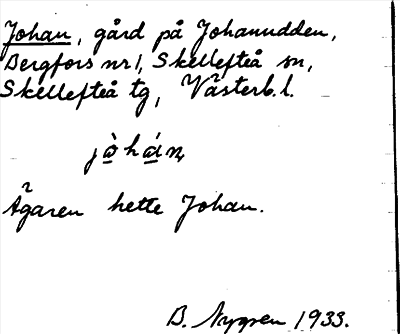 Johan, gård på Johanudden,
Bergfors nr 1, Skellefteå sn,
Skellefteå tg, Västerb. l.
jòhán
Ägaren hette Johan.
B. Nygren 1933.